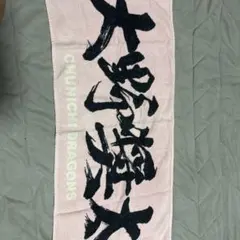 大野雄大
CHUNICHI DRAGONS